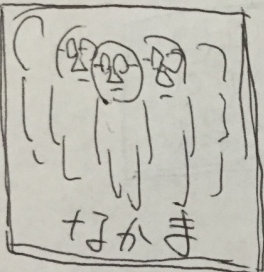 なかま